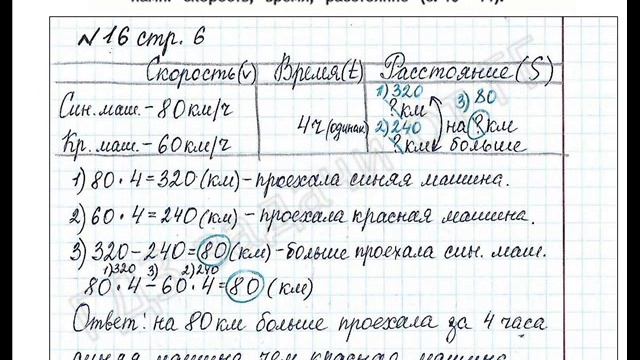 №16 стр. 6
Скорость(v) Время(t) Расстояние(S)
Син. маш. - 80 км/ч 4ч (одинак) 1) 320 ? км 3) 80
на ? км больше
Кр. маш. - 60 км/ч 2) 240 ? км
1) 80 · 4 = 320 (км) - проехала синяя машина.
2) 60 · 4 = 240 (км) - проехала красная машина.
3) 320 - 240 = 80 (км) - больше проехала син. маш.
1) 320 3) 2) 240
80 · 4 - 60 · 4 = 80 (км)
Ответ: на 80 км больше проехала за 4 часа